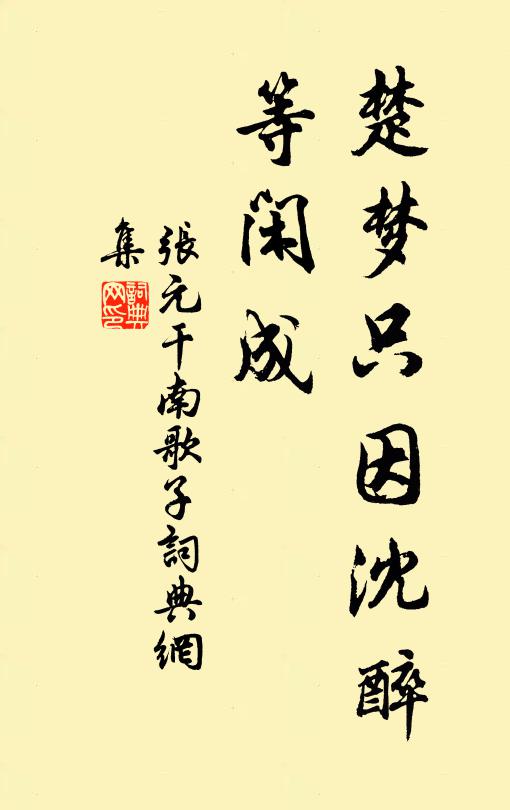 楚梦只因沈醉
等闲成
張元干南歌子詞典網
集
詞典
网印